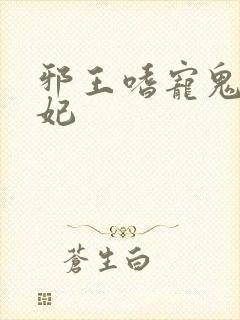 邪王嗜寵鬼
妃
蒼生白